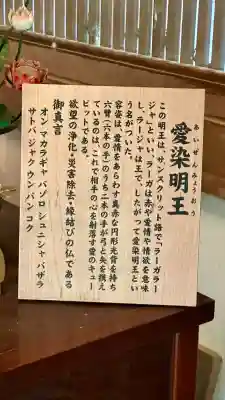 あいぜんみょうおう
愛染明王
この明王は、サンスクリット語で「ラーガラー
ジャ」といい、ラーガは赤や愛情や情欲を意味
し、ラージャは王で、したがって愛染明王とい
う名がついた。
容姿は、愛情をあらわす真赤な円形光背を持ち
六臂(六本の手)のうち二本の手が弓と矢を携え
ているのは、これで相手の心を射落す愛のキュー
ピットである。
欲望の浄化・災害除去・縁結びの仏である
御真言
オン マカラギャ バゾロ シュニシャ バザラ
サトバ ジャク ウン バン コク